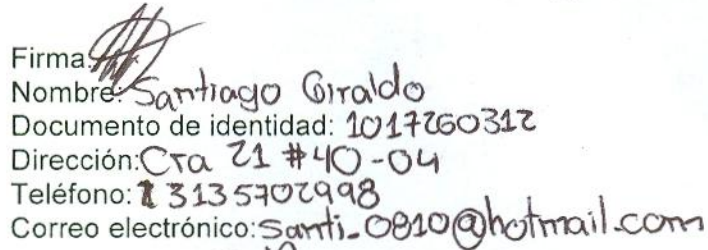 Firma:
Nombre: Santiago Giraldo
Documento de identidad: 1017260312
Dirección: Cra 21 #40-04
Teléfono: 3135702998
Correo electrónico: Santi_0810@hotmail.com